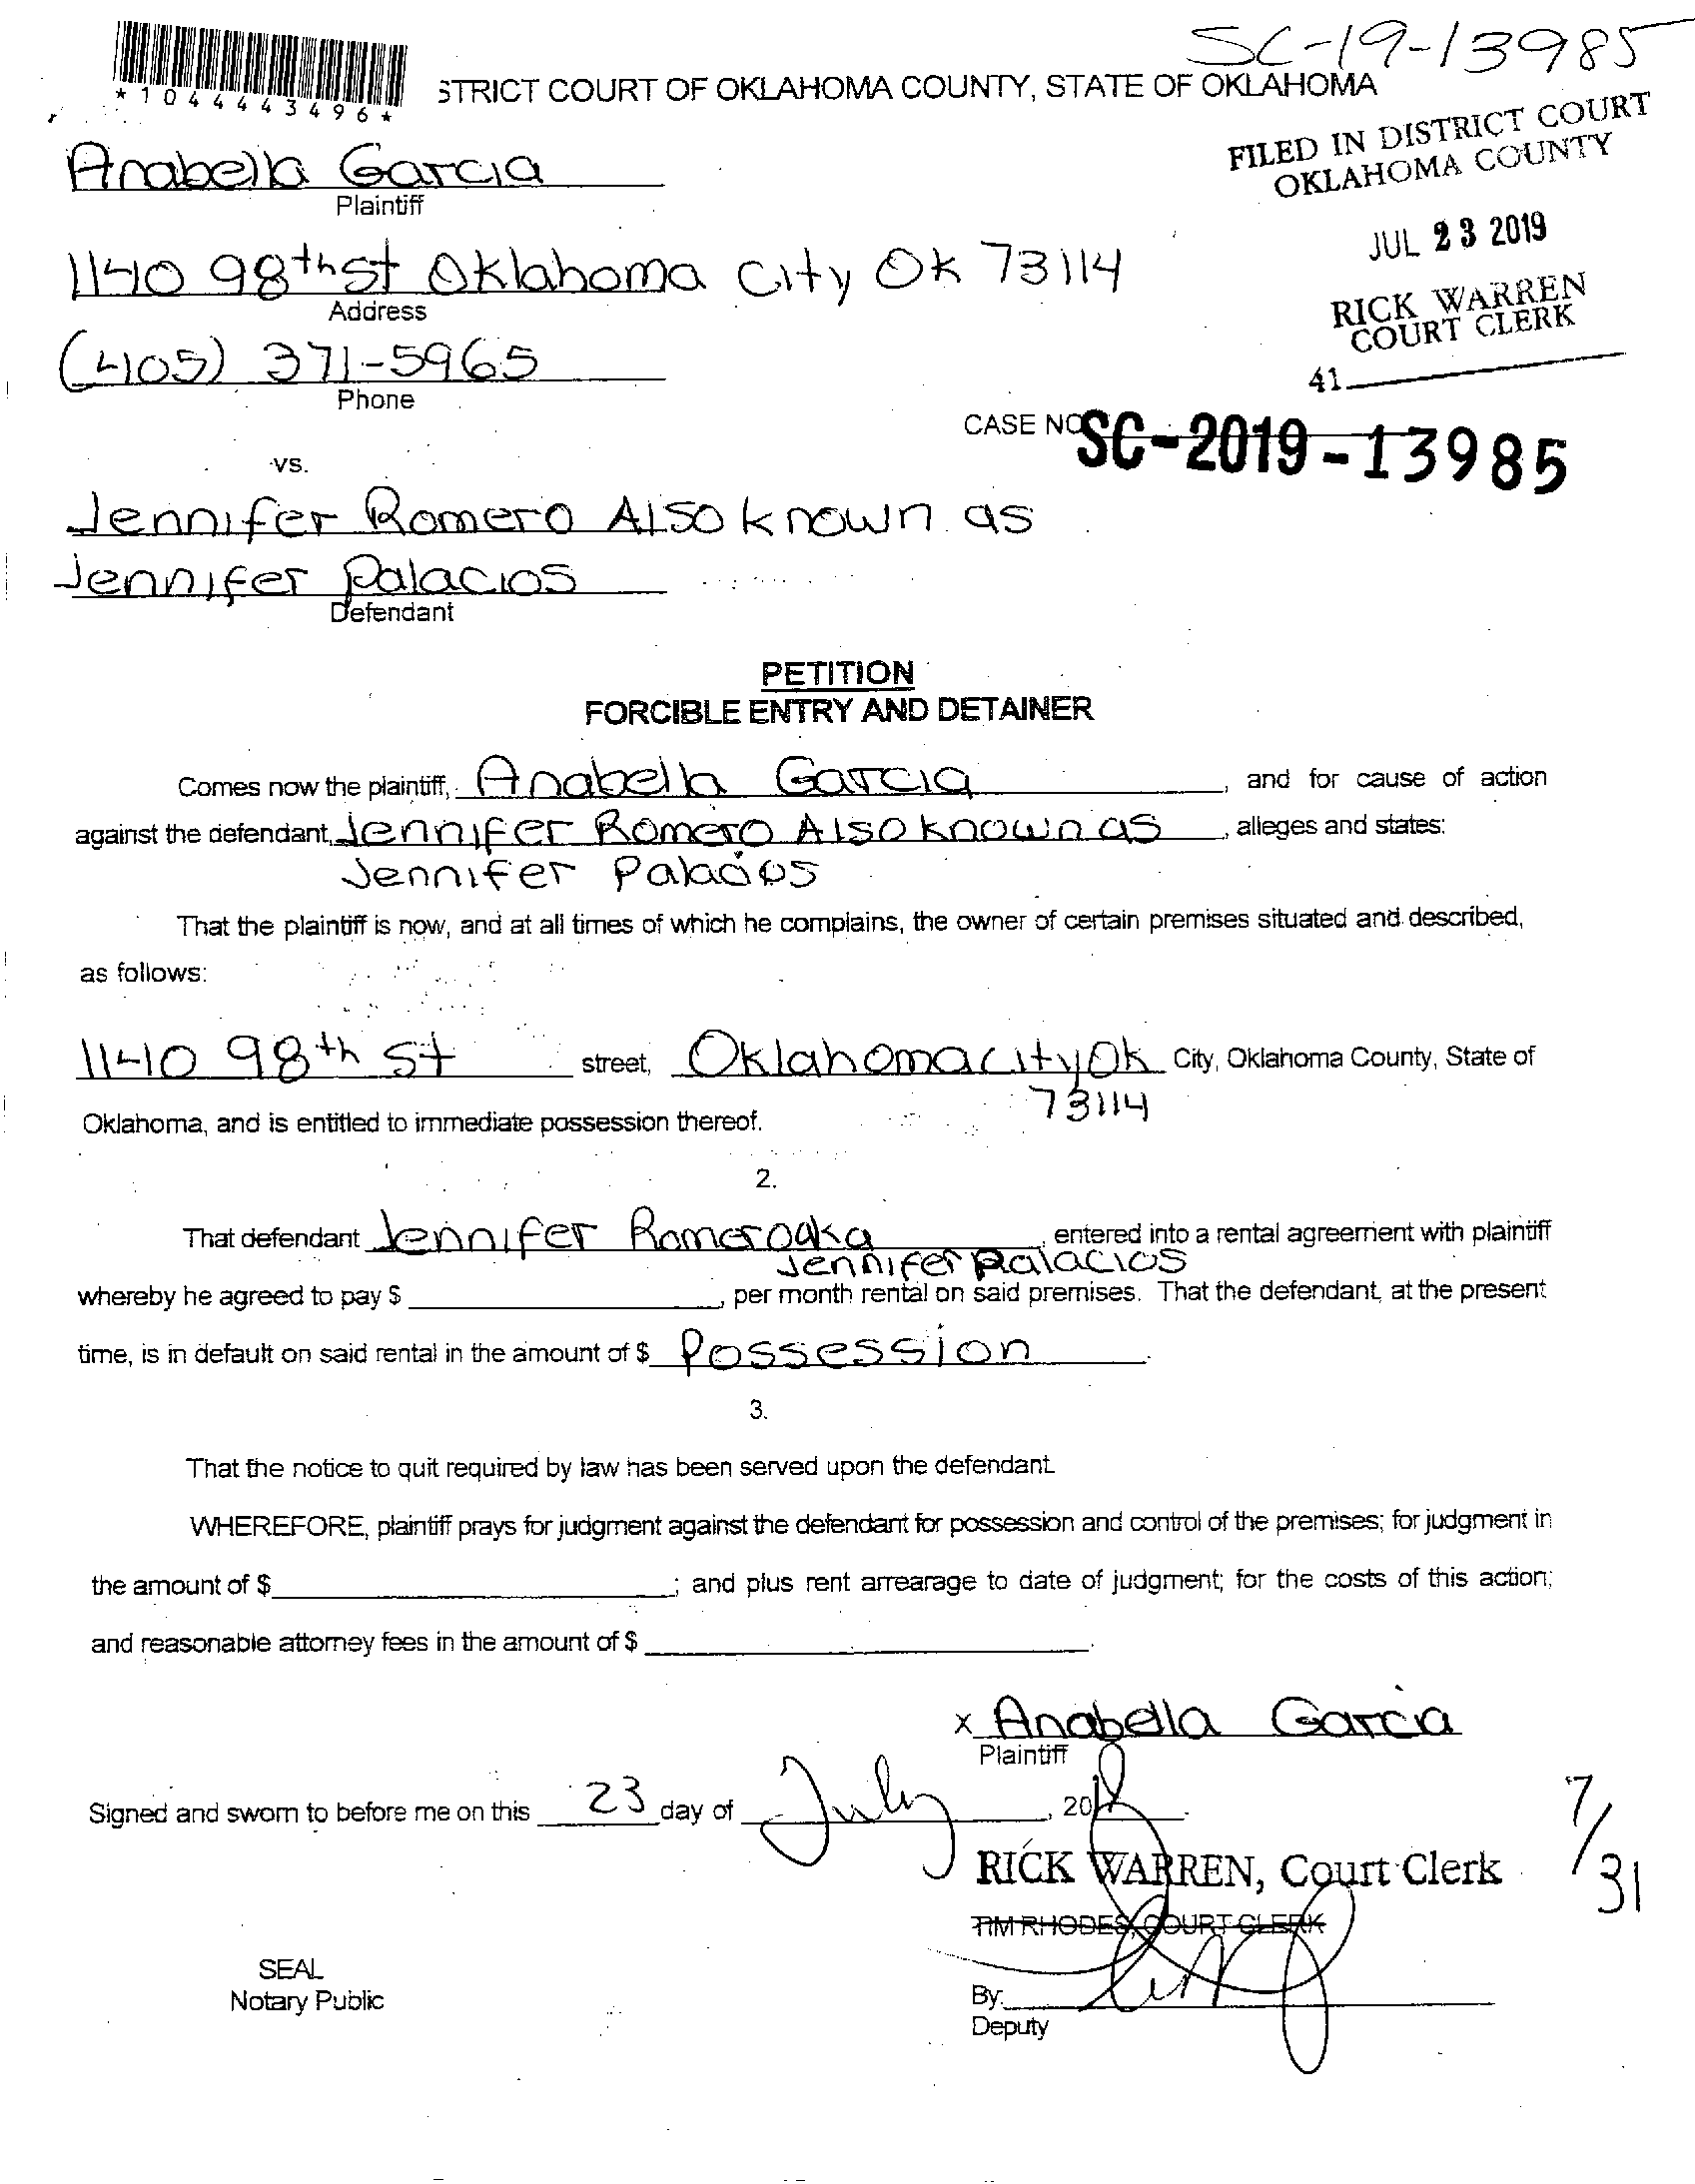 SC-19-13985
*1044443496*
STRICT COURT OF OKLAHOMA COUNTY, STATE OF OKLAHOMA
FILED IN DISTRICT COURT
OKLAHOMA COUNTY
Anabella Garcia
Plaintiff
JUL 23 2019
1140 98th st Oklahoma City OK 73114
Address
RICK WARREN
COURT CLERK
(405) 371-5965
Phone
41
CASE NO SC-2019-13985
vs.
Jennifer Romero Also known as
Jennifer Palacios
Defendant
PETITION
FORCIBLE ENTRY AND DETAINER
Comes now the plaintiff, Anabella Garcia, and for cause of action
against the defendant, Jennifer Romero Also known as, alleges and states:
Jennifer Palacios
That the plaintiff is now, and at all times of which he complains, the owner of certain premises situated and described,
as follows:
1140 98th St street, Oklahoma city Ok City, Oklahoma County, State of
73114
Oklahoma, and is entitled to immediate possession thereof.
2.
That defendant Jennifer Romero aka, entered into a rental agreement with plaintiff
Jennifer Palacios
whereby he agreed to pay $, per month rental on said premises. That the defendant, at the present
time, is in default on said rental in the amount of $ Possession.
3.
That the notice to quit required by law has been served upon the defendant.
WHEREFORE, plaintiff prays for judgment against the defendant for possession and control of the premises; for judgment in
the amount of $; and plus rent arrearage to date of judgment; for the costs of this action;
and reasonable attorney fees in the amount of $.
x Anabella Garcia
Plaintiff
Signed and sworn to before me on this 23 day of July, 20
7/31
RICK WARREN, Court Clerk
TIM RHODES, COURT CLERK
SEAL
Notary Public
By:
Deputy